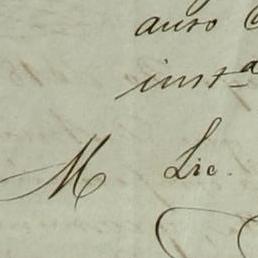 auto
inst.a
M Lic.